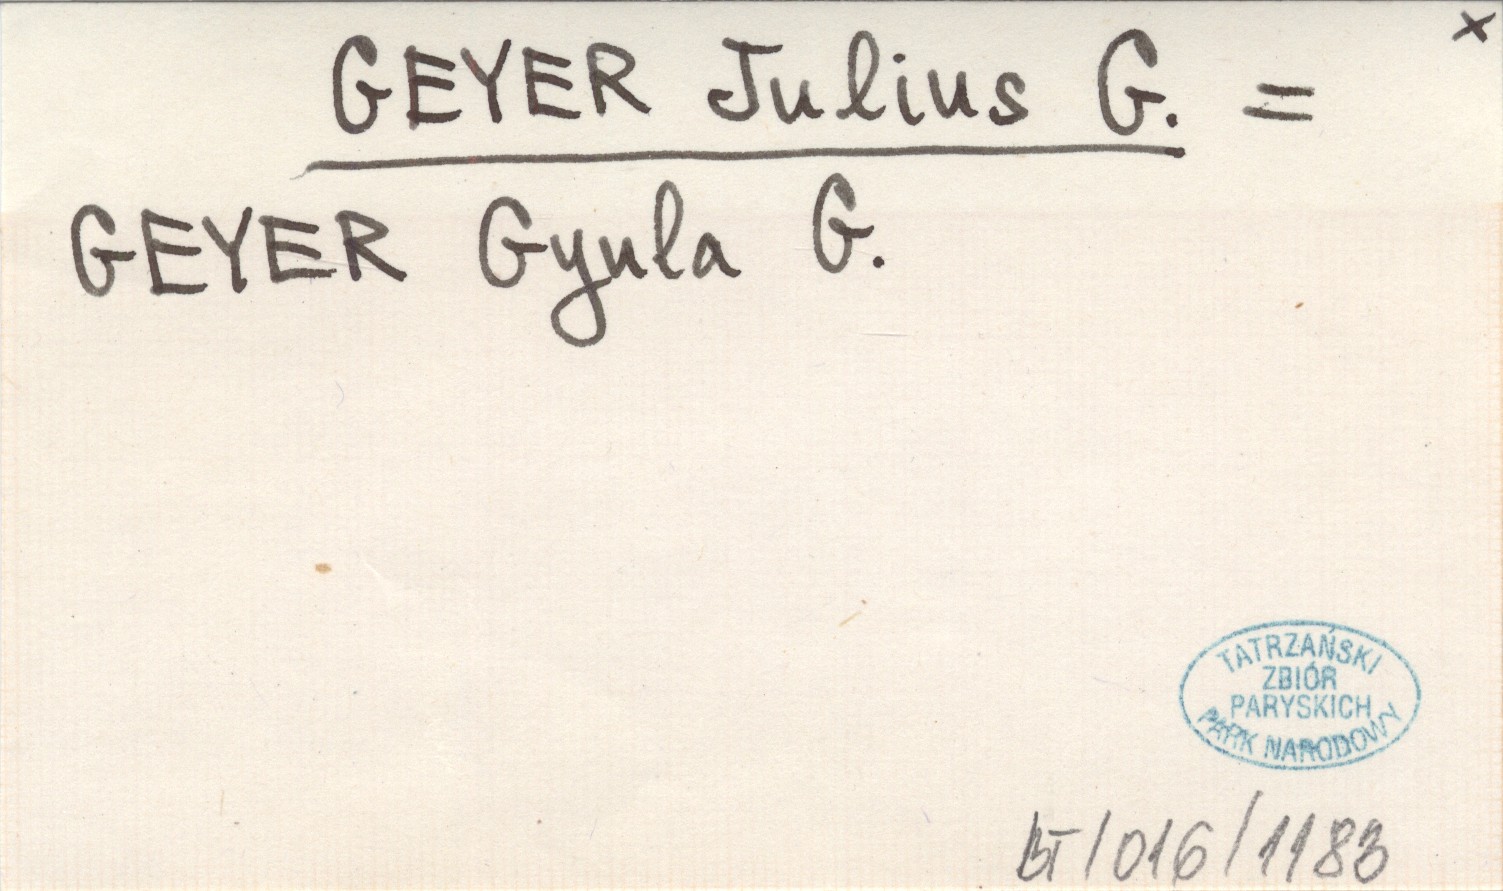 x
GEYER Julius G. =
GEYER Gyula G.
TATRZAŃSKI
ZBIÓR
PARYSKICH
PARK NARODOWY
BT/016/1183